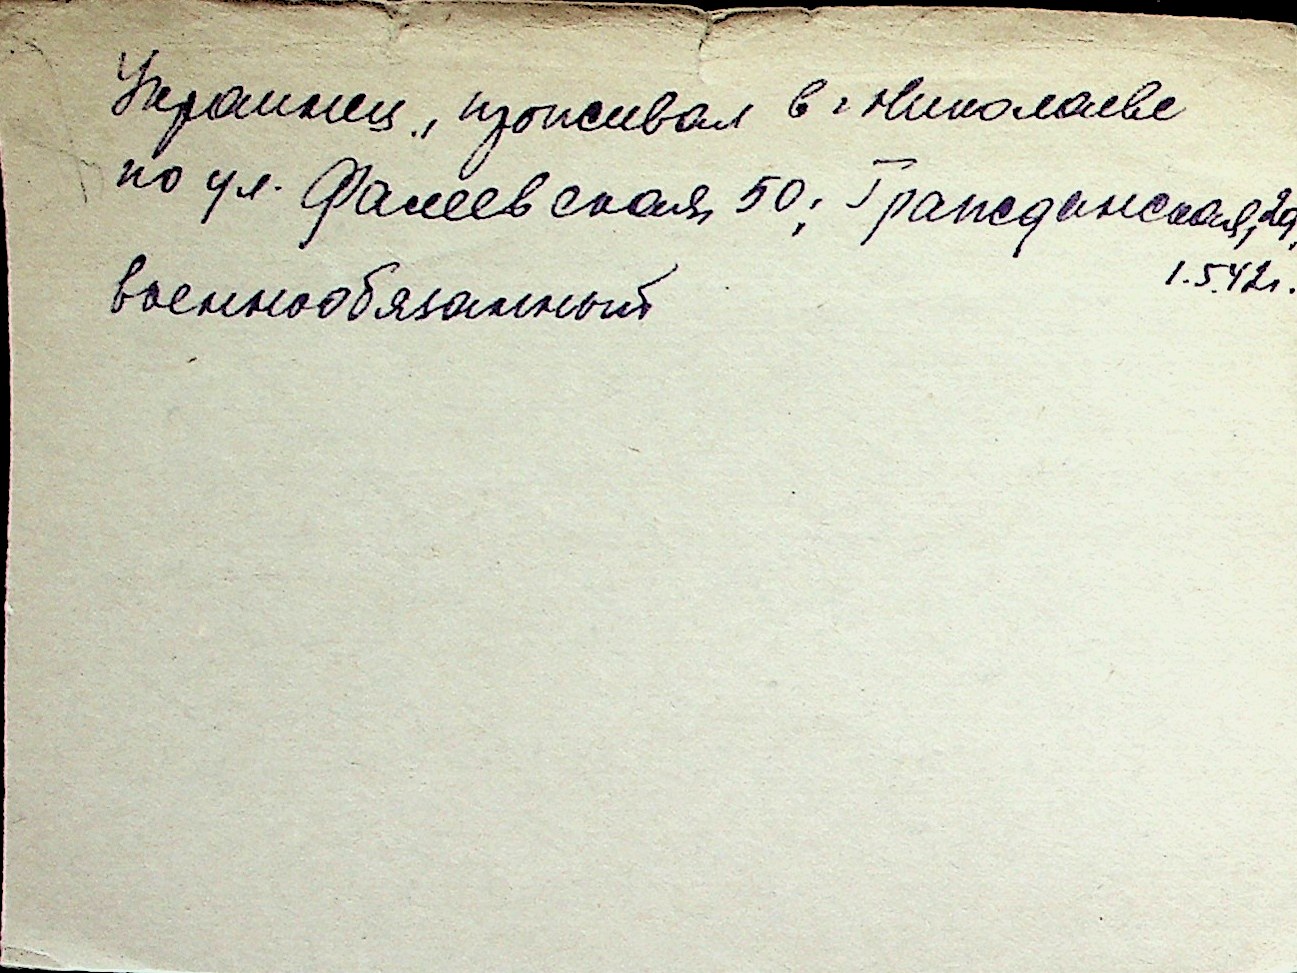 Украинец, проживал в г. Николаеве
по ул. Фалеевская, 50; Гражданская, 29,
1.5.42 г.
военнообязанный